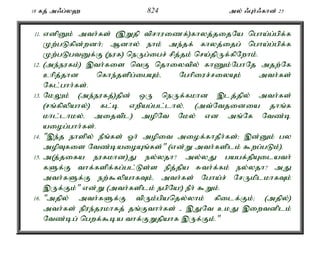 18 கத் அஃப்லஹ 824 அல் ஃபுர்க்கான் 25
11. எனினும் அவர்கள் (இறுதி விசாரணைக்)காலத்தையே பொய்ப்பிக்க
முற்படுகின்றனர்; ஆனால் நாம் அந்தக் காலத்தைப் பொய்ப்பிக்க
முற்படுபவனுக்கு (நரக) நெருப்பைச் சித்தம் செய்திருக்கிறோம்.
12. (அந்நரகம்) இவர்களை வெகு தொலைவில் காணும்போதே அதற்கே
உரித்தான கொந்தளிப்பையும், பேரிரைச்சலையும் அவர்கள்
கேட்பார்கள்.
13. மேலும் (அந்நரகத்)தின் ஒரு நெருக்கமான இடத்தில் அவர்கள்
(சங்கிலியால்) கட்டி எறியப்பட்டால், (அவ்வேதனையை தாங்க
மாட்டாமல், அதைவிட) அழிவே மேல் என அங்கே வேண்டி
யழைப்பார்கள்.
14. "இந்த நாளில் நீங்கள் ஓர் அழிவை அழைக்காதீர்கள்; இன்னும் பல
அழிவுகளை வேண்டியழையுங்கள்" (என்று அவர்களிடம் கூறப்படும்).
15. அ(த்தகைய நரகமான)து நல்லதா? அல்லது பயபக்தியுடையவர்
களுக்கு வாக்களிக்கப்பட்டுள்ள நித்திய சுவர்க்கம் நல்லதா? அது
அவர்களுக்கு நற்கூலியாகவும், அவர்கள் போய்ச் சேருமிடமாகவும்
இருக்கும்" என்று (அவர்களிடம் நபியே) நீர் கூறும்.
16. "அதில் அவர்களுக்கு விரும்பியதெல்லாம் கிடைக்கும்; (அதில்)
அவர்கள் நிரந்தரமாகத் தங்குவார்கள் - இதுவே உமது இறைவனிடம்
வேண்டிப் பெறக்கூடிய வாக்குறுதியாக இருக்கும்."